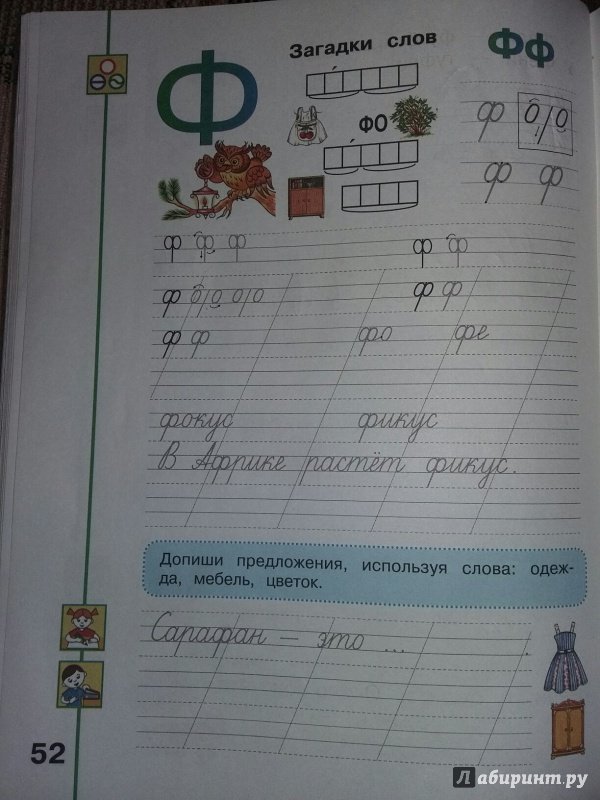 Ф
Загадки слов
Фф
ФО
ф
ф ф
ф ф ф ф ф
ф ф ф
ф ф фо фе
фокус фикус
В Африке растёт фикус.
Допиши предложения, используя слова: одеж-
да, мебель, цветок.
Сарафан — это ... .
52
Лабиринт.ру